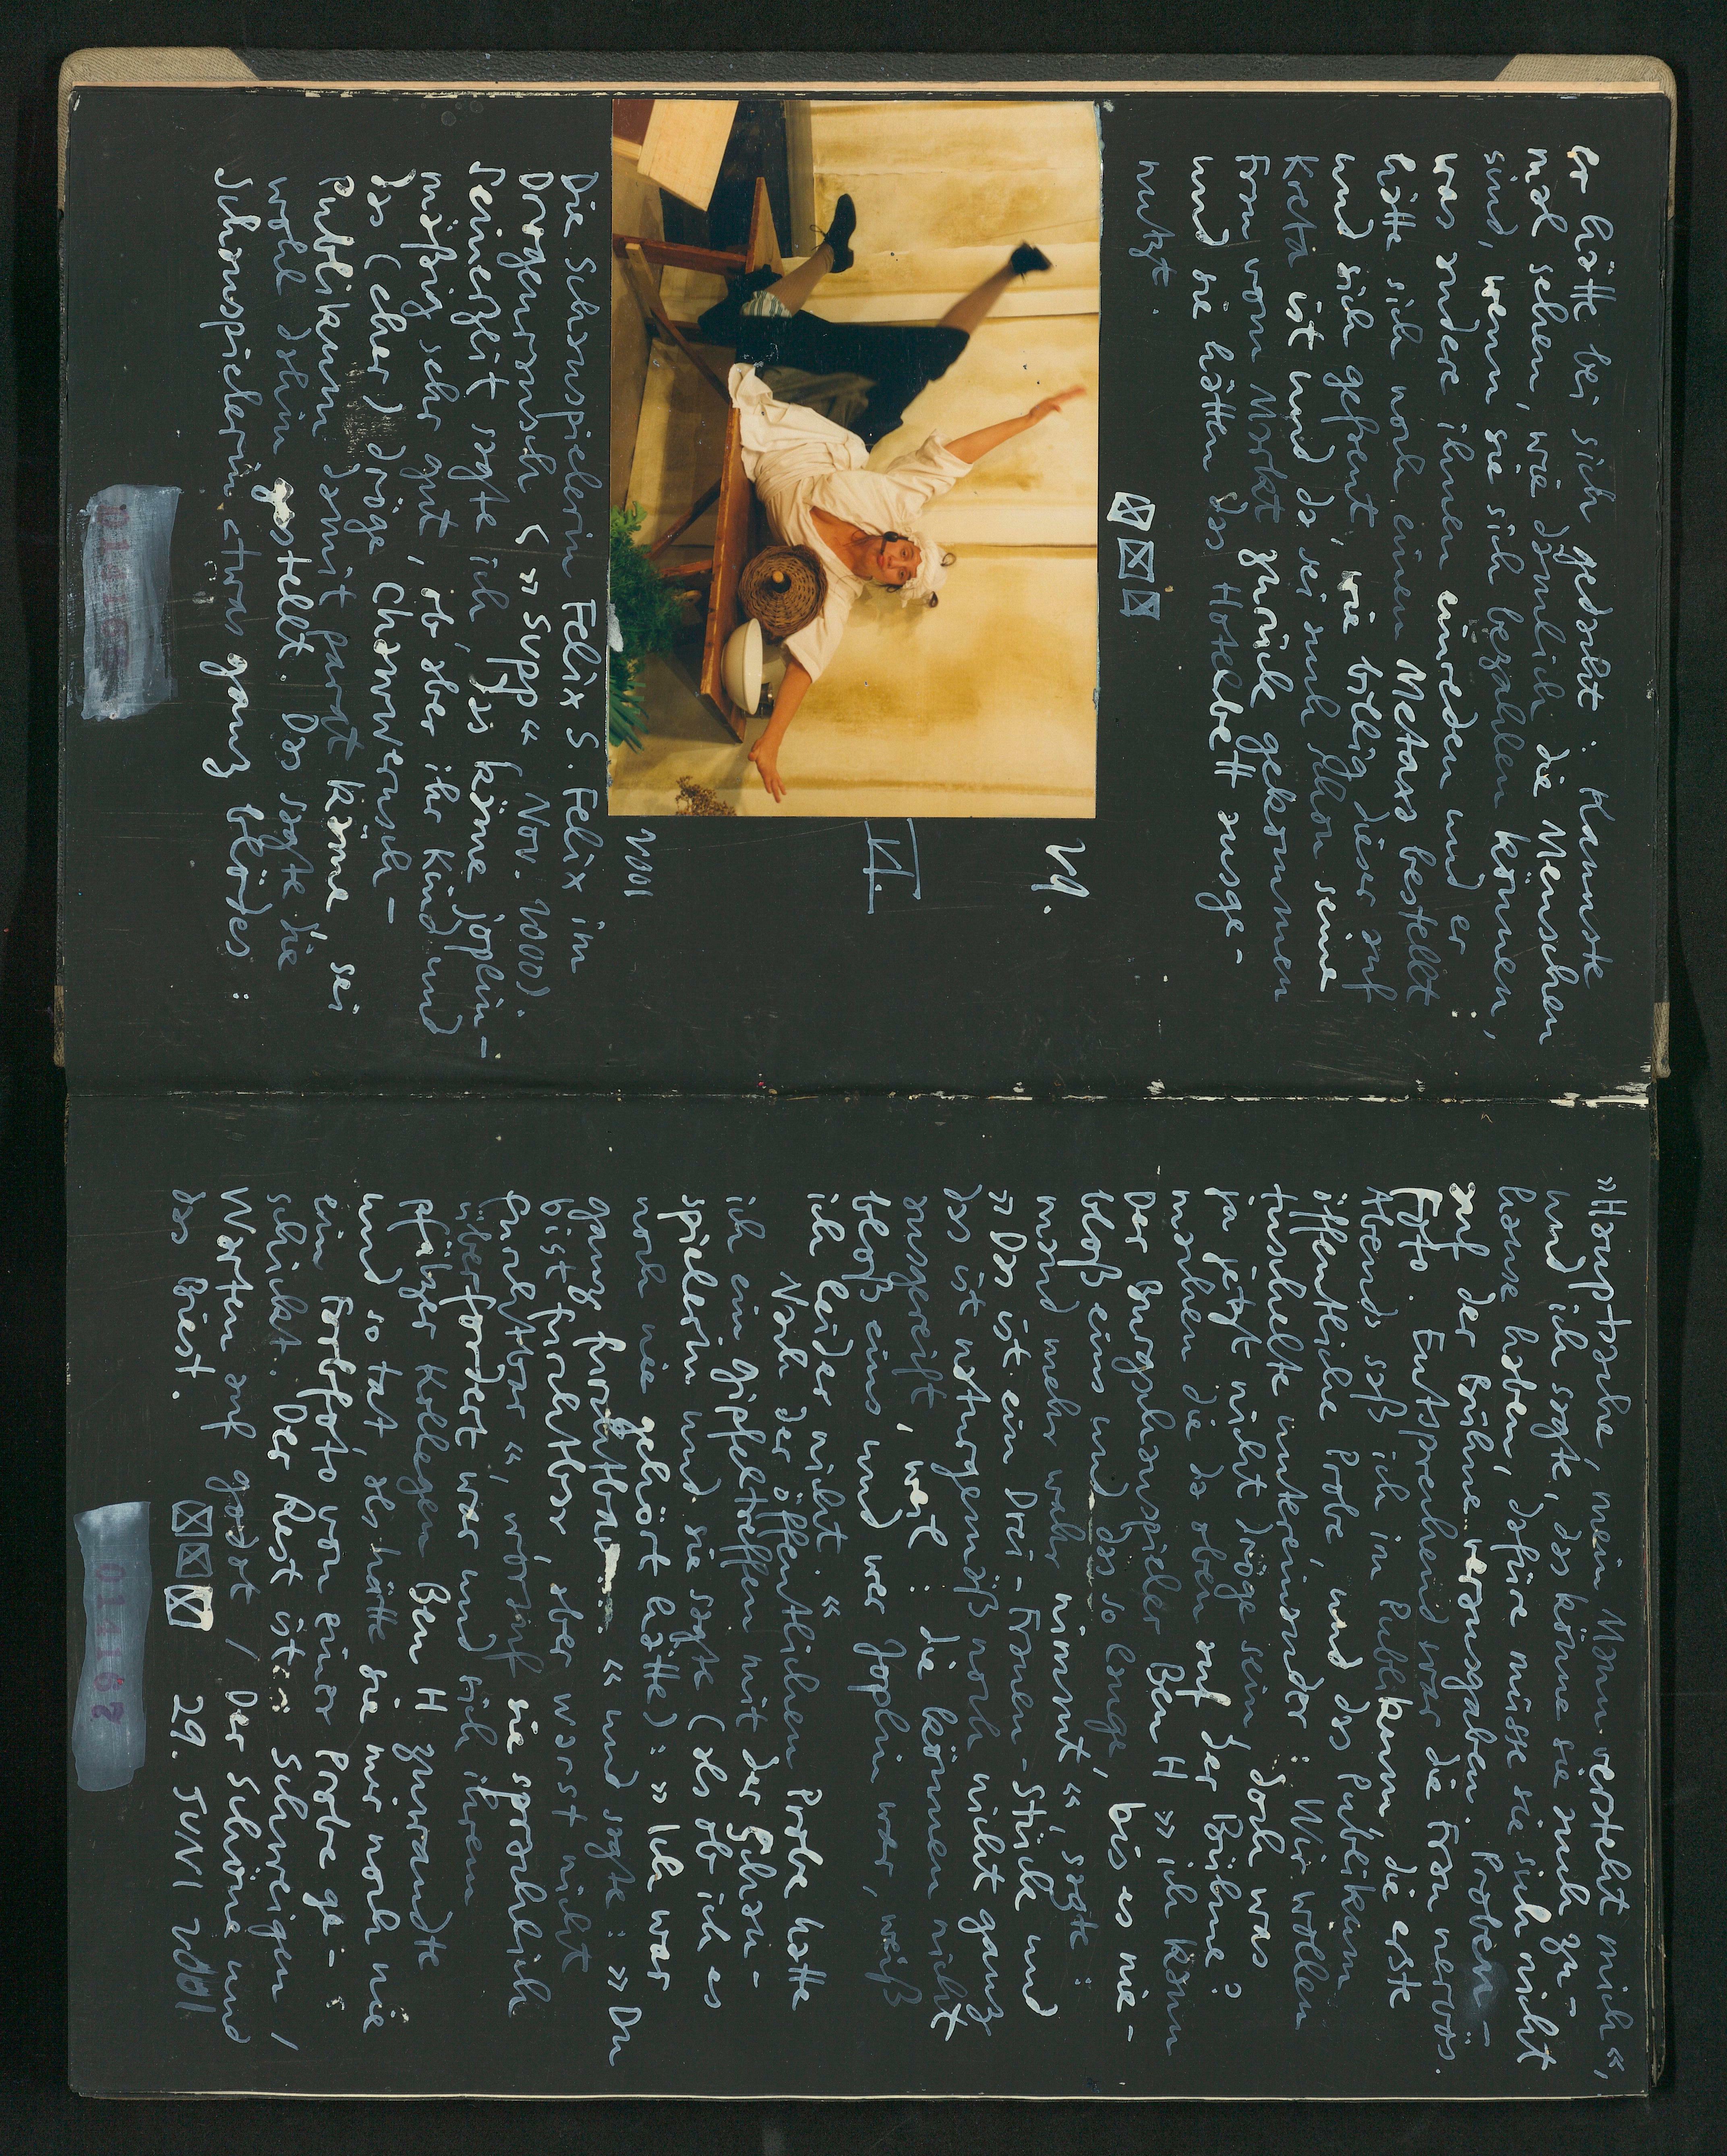 er hätte bei sich gedacht: Kannste
mal sehen, wie dämlich die Menschen
sind, wenn sie sich bezahlen können,
was andere ihnen einreden und er
hätte sich noch einen Metaxa bestellt
und sich gefreut, wie billig dieser auf
Kreta ist und da sei auch schon seine
Frau vom Markt zurück gekommen
und sie hätten das Hotelbett ausge-
nutzt.
21.
VI.
2001
Die Schauspielerin Felix S. Felix im
Drogenrausch (»Supp« Nov. 2000).
Seinerzeit sagte ich, das käme joplin-
mäßig sehr gut, ob aber ihr Kind und
das (eher) dröge, Charlwerouch-
Publikum damit parat käme, sei
wohl dahin gestellt. Das sagte die
Schauspielerin etwas ganz blödes:
»Hauptsache, mein Mann versteht mich«,
und ich sagte, das könne sie auch zu-
hause haben, dafür müsse sie sich nicht
auf der Bühne verausgaben. Proben-
Foto. Entsprechend war die Frau nervös.
Abends saß ich im Publikum die erste
öffentliche Probe, und das Publikum
tuschelte untereinander: Wir wollen
ja jetzt nicht dröge sein, doch was
machen die da oben auf der Bühne?
Der Burgschauspieler Ben H »ich kann
bloß eins und das so lange, bis es nie-
mand mehr wahr nimmt«, sagte:
»Das ist ein Drei-Frauen-Stück und
das ist naturgemäß noch nicht ganz
ausgereift, weil: die können nicht
bloß eins und wer Joplin war, weiß
ich leider nicht.«
Nach der öffentlichen Probe hatte
ich ein Gipfeltreffen mit der Schau-
spielerin und sie sagte (als ob ich es
noch nie gehört hätte): »Ich war
ganz furchtbar.« und sagte: »Du
bist furchtbar, aber warst nicht
furchtbar«, worauf sie sprachlich
überfordert war und sich ihrem
pfälzer Kollegen Ben H zuwandte
und so tat, als hätte sie mir noch nie
ein Farbfoto von einer Probe ge-
schickt. Der Rest ist: Schweigen /
Warten auf godot / Der Schöne und
das Biest. 29. JUNI 2001
011168